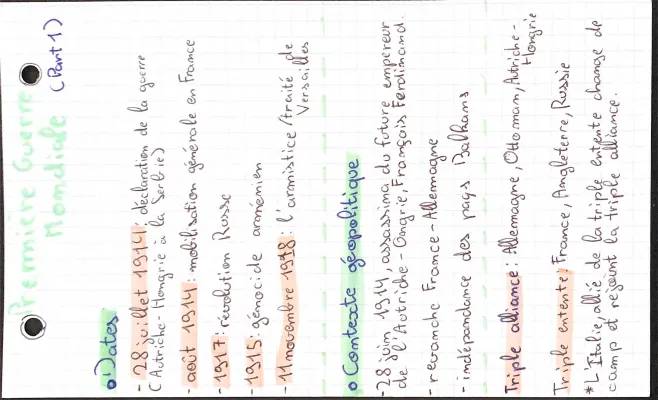 Premmière Guerre
Mondiale (Part 1)
Dates
- 28 juillet 1914 : déclaration de la guerre
(Autriche-Hongrie à la Serbie)
- août 1914 : mobilisation générale en France
- 1917 : révolution Russe
- 1915 : génocide arménien
- 11 novembre 1918 : l'armistice/traité de
Versailles
Contexte géopolitique
- 28 juin 1914, assassina du future empereur
de l'Autriche-Ongrie, François Ferdinand.
- revanche France-Allemagne
- indépendance des pays Balkans
Triple alliance : Allemagne, Ottoman, Autriche-
Hongrie
Triple entente : France, Angleterre, Russie
*L'Italie, allié de la triple entente change de
camp et rejoint la triple alliance.